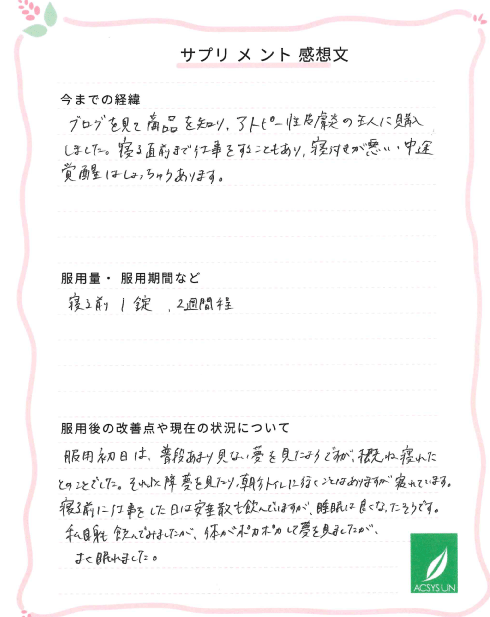 サプリメント 感想文
今までの経緯
ブログを見て商品を知り、アトピー性皮膚炎の主人に購入
しました。寝る直前まで仕事をすることもあり、寝付きが悪い、中途
覚醒はしょっちゅうあります。
服用量・服用期間など
寝る前 1錠 、2週間程
服用後の改善点や現在の状況について
服用初日は、普段あまり見ない夢を見たようですが、概ね寝れた
とのことでした。それ以降夢を見たり、朝方トイレに行くことはありますが寝れています。
寝る前に仕事をした日は安定散も飲んでいますが、睡眠は良くなったそうです。
私自身も飲んでみましたが、体がポカポカして夢を見ましたが、
よく眠れました。
ACSYSUN